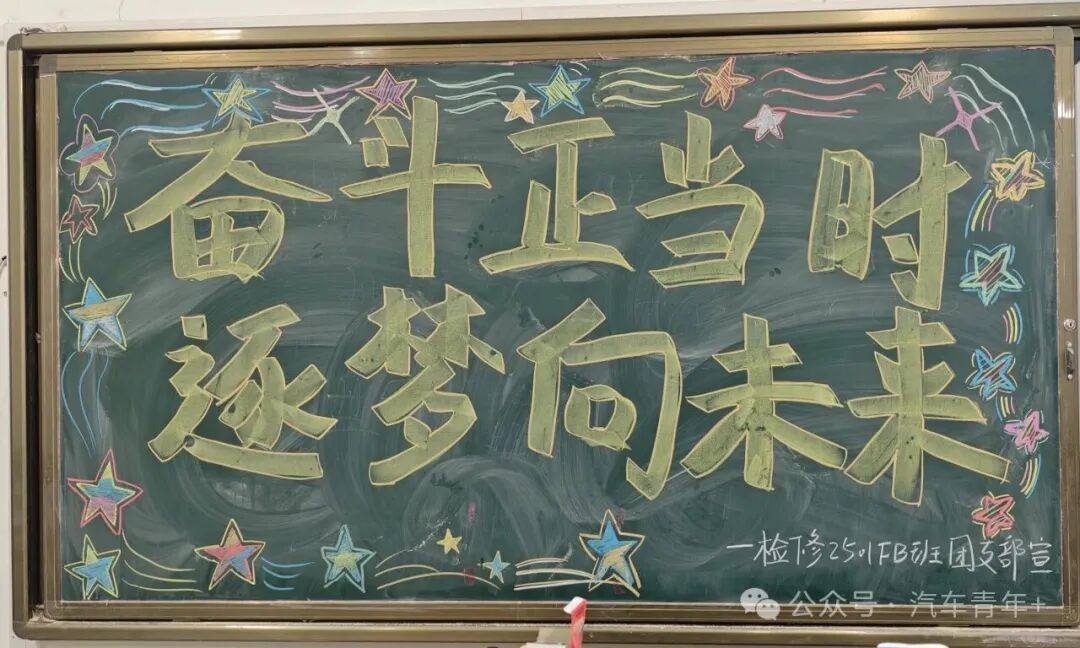 奋斗正当时
逐梦向未来
一检修2501FB班团支部宣
公众号·汽车青年+